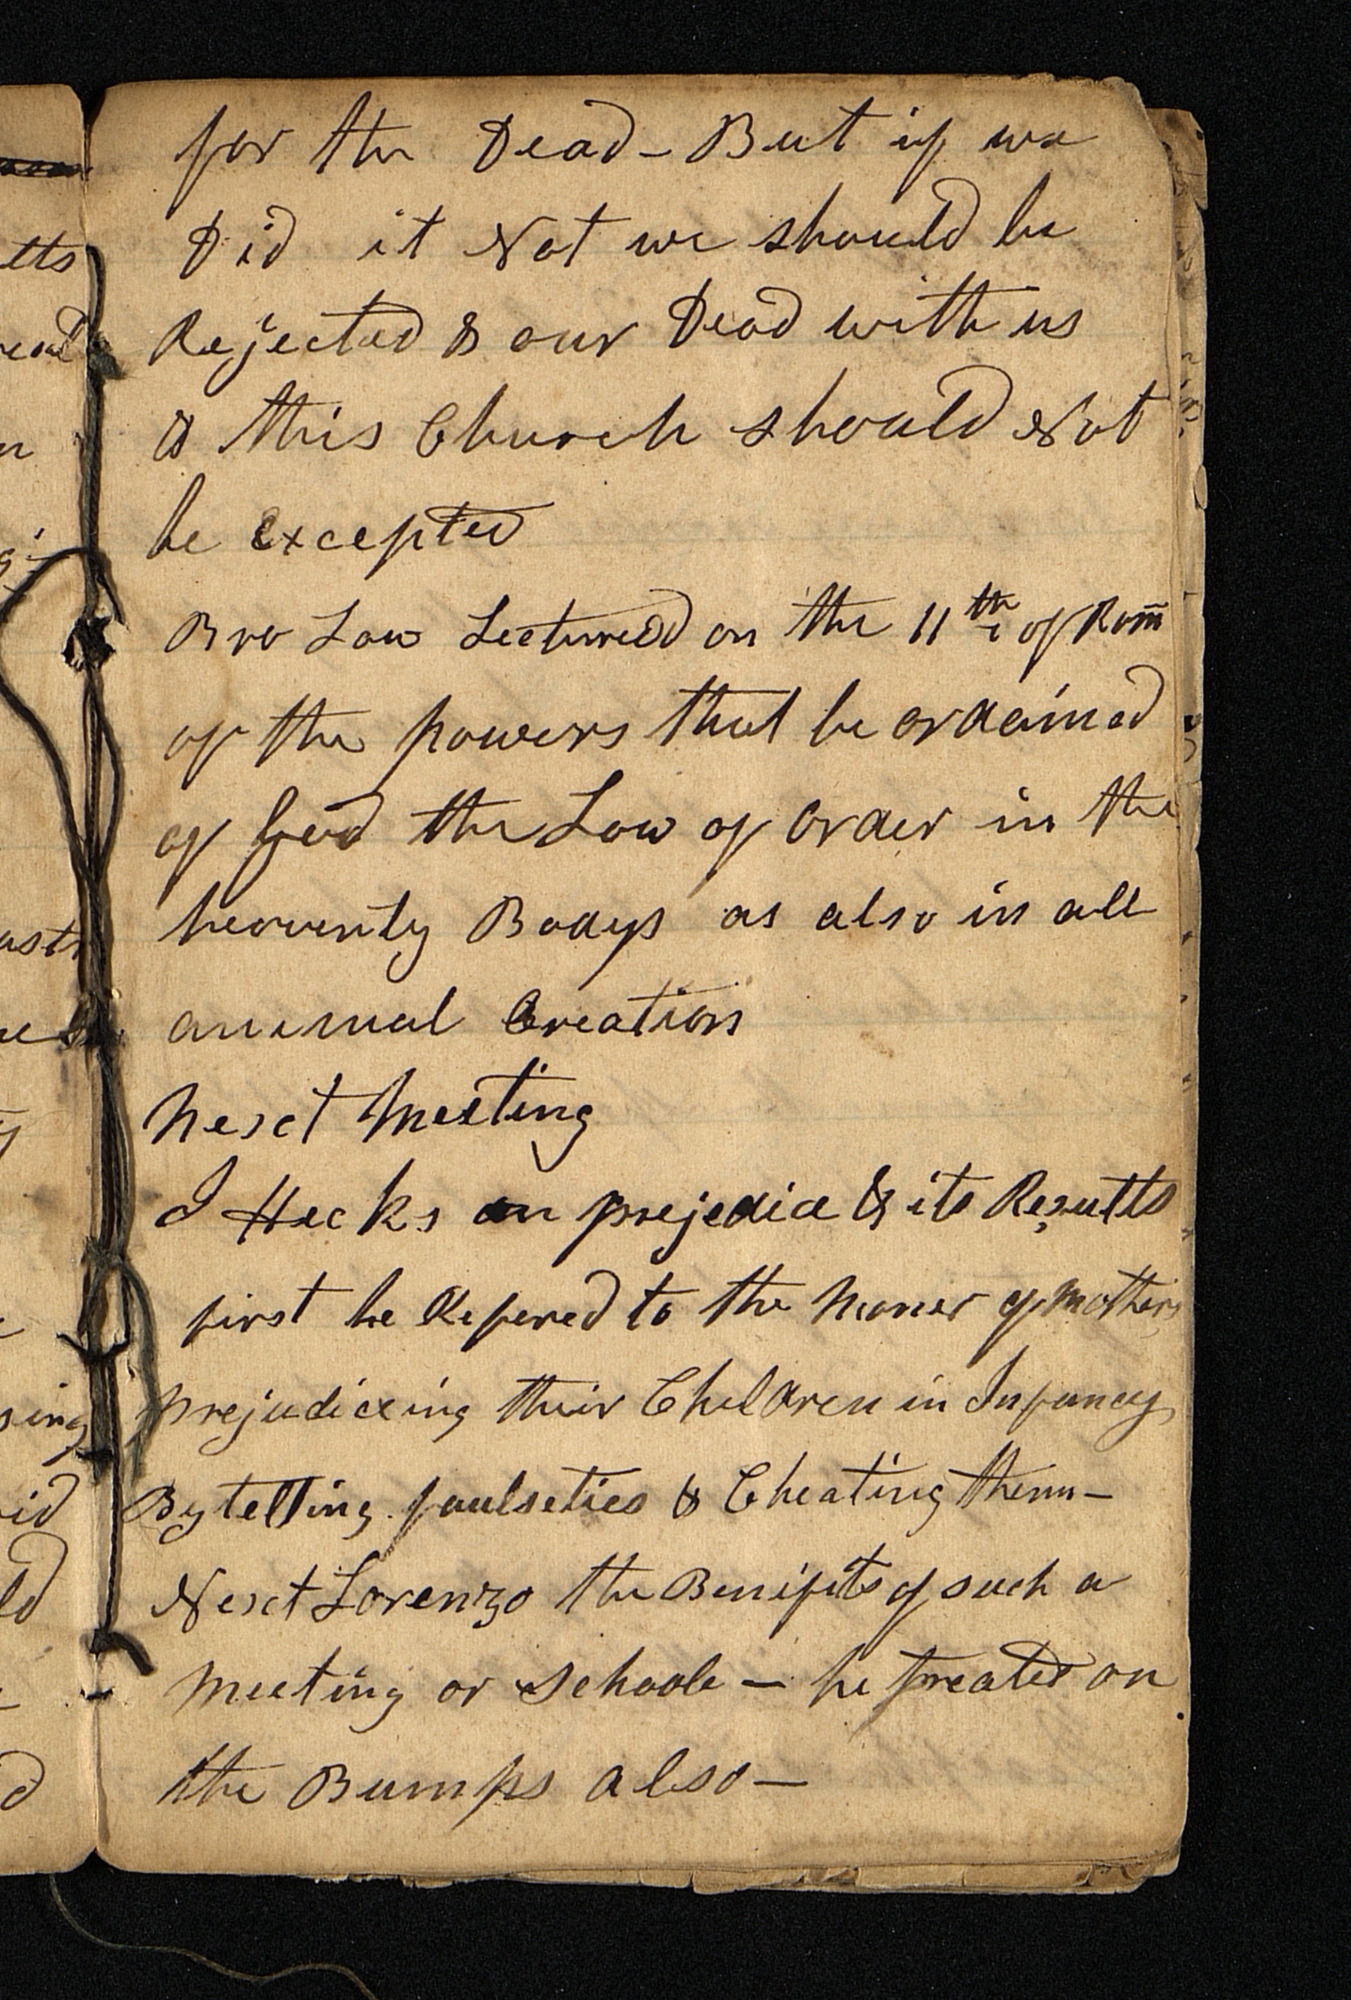 for the Dead - But if we
Did it Not we should be
Rejected & our Dead with us
& this Church should Not
be excepted
Bro Law Lectured on the 11th of Rom
of the powers that be ordained
of God the Law of order in the
heavenly Bodys as also in all
animal Creation
Next Meeting
J Hicks on prejedice & its Results
first he Refered to the maner of mothers
prejudiceing their Children in Infancy
By telling faulseties & Cheating them -
Next Lorenzo the Benifits of such a
meeting or Schoole - he treated on
the Bumps also -